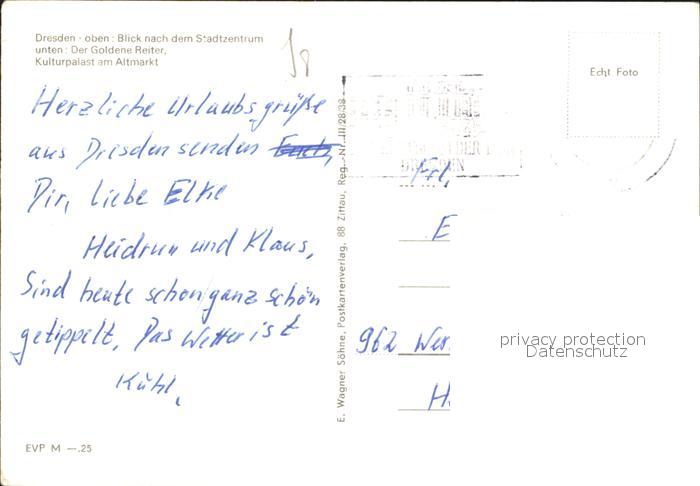 Dresden · oben: Blick nach dem Stadtzentrum
unten: Der Goldene Reiter,
Kulturpalast am Altmarkt
Herzliche Urlaubsgrüße
aus Dresden senden
Dir, liebe Elke
Heidrun und Klaus.
Sind heute schon ganz schön
getippelt. Das Wetter ist
Kühl.
EVP M —.25
E. Wagner Söhne, Postkartenverlag, 88 Zittau, Reg.-Nr. III/28/38
Echt Foto
DRESDEN
Frl.
E
962 Wer
H
privacy protection
Datenschutz